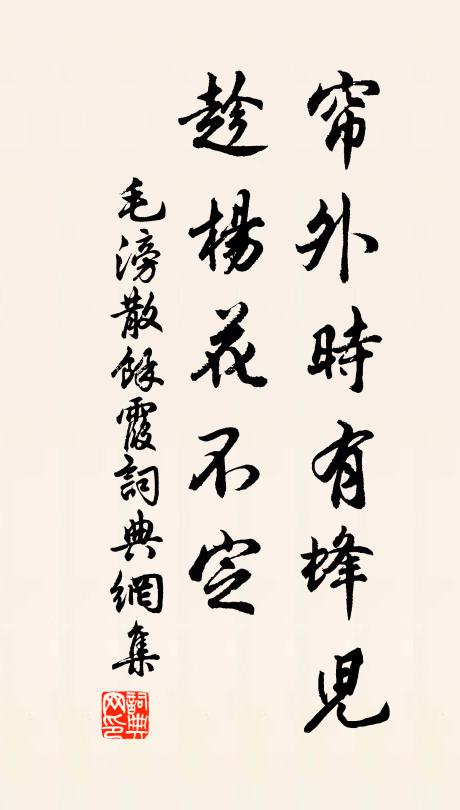 帘外時有蜂兒
趁楊花不定
毛滂散餘霞詞典網集
詞典网印